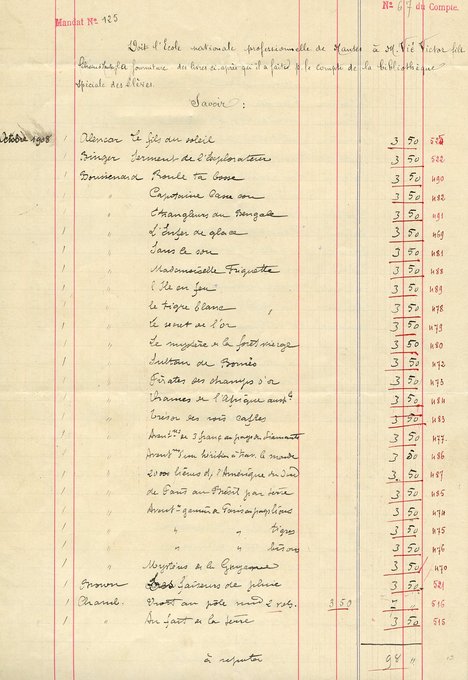 Mandat No 125
No 67 du Compte.
Doit l'Ecole nationale professionnelle de à M. Vié Victor
fourniture des livres ci-après qu'il a faite p. le compte de la bibliothèque
spéciale des Elèves.
Savoir :
Octobre 1908 1 Alencar Le fils du soleil 3 50
1 Binger Serment de l'Explorateur 3 50 522
1 Boussenard Roule ta bosse 3 50 490
1 " Capitaine Casse cou 3 50 482
1 " Etrangleurs du Bengale 3 50 491
1 " L'Enfer de glace 3 50 469
1 " Sans le sou 3 50 481
1 " Mademoiselle Friquette 3 50 488
1 " l'Ile en feu 3 50 489
1 " le tigre blanc 3 50 478
1 " Le secret de l'or 3 50 479
1 " Le mystère de la forêt vierge 3 50 480
1 " Sultan de Bornéo 3 50 472
1 " Pirates des champs d'or 3 50 473
1 " Drames de l'Afrique aust. 3 50 484
1 " trésor des rois cafres 3 50 483
1 " Avent. de 3 franç. au pays des diamants 3 50 477
1 " Avent. d'un héritier à trav. le monde 3 50 486
1 " 20000 lieues de l'Amérique du Sud 3 50 487
1 " de Paris au Brésil par terre 3 50 485
1 " Avent. gamin de Paris au pays lions 3 50 474
1 " " " tigres 3 50 475
1 " " " bisons 3 50 476
1 " Mystères de la Guyane 3 50 470
1 Brown Les faiseurs de pluie 3 50 521
1 au pôle sud 2 vols. 3 50 7 " 516
1 " Au fait de la terre 3 50 515
98 "
à reporter